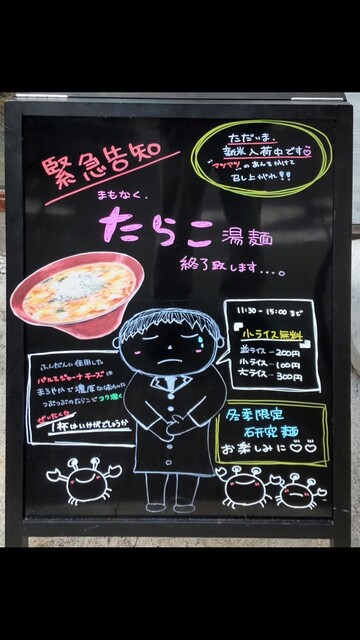 緊急告知
まもなく、
たらこ湯麺
終了致します…。
ただいま、
新米入荷中です
"アツアツ"のあんをかけて
召し上がれ!!
11:30-15:00まで
小ライス無料
並ライス…200円
小ライス…100円
大ライス…300円
ふんだんに使用した
パルミジャーナチーズは
まろやかで濃厚な味わい
つぶつぶのたらこでコク深く
ぜいたくな
1杯はいかがでしょうか
冬季限定
研究麺
お楽しみに♡♡